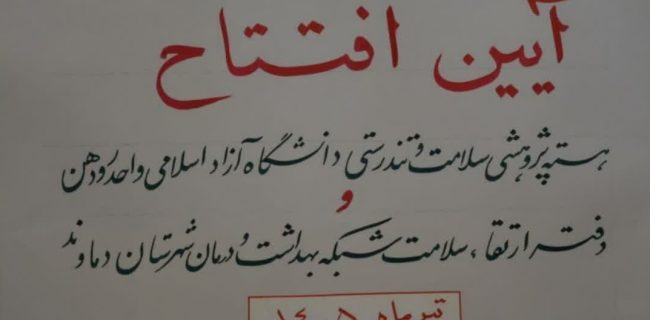 آیین افتتاح
هسته پژوهشی سلامت و تندرستی دانشگاه آزاد اسلامی واحد رودهن
و
دفتر ارتقاء سلامت شبکه بهداشت و درمان شهرستان دماوند
تیرماه ۱۴۰۵